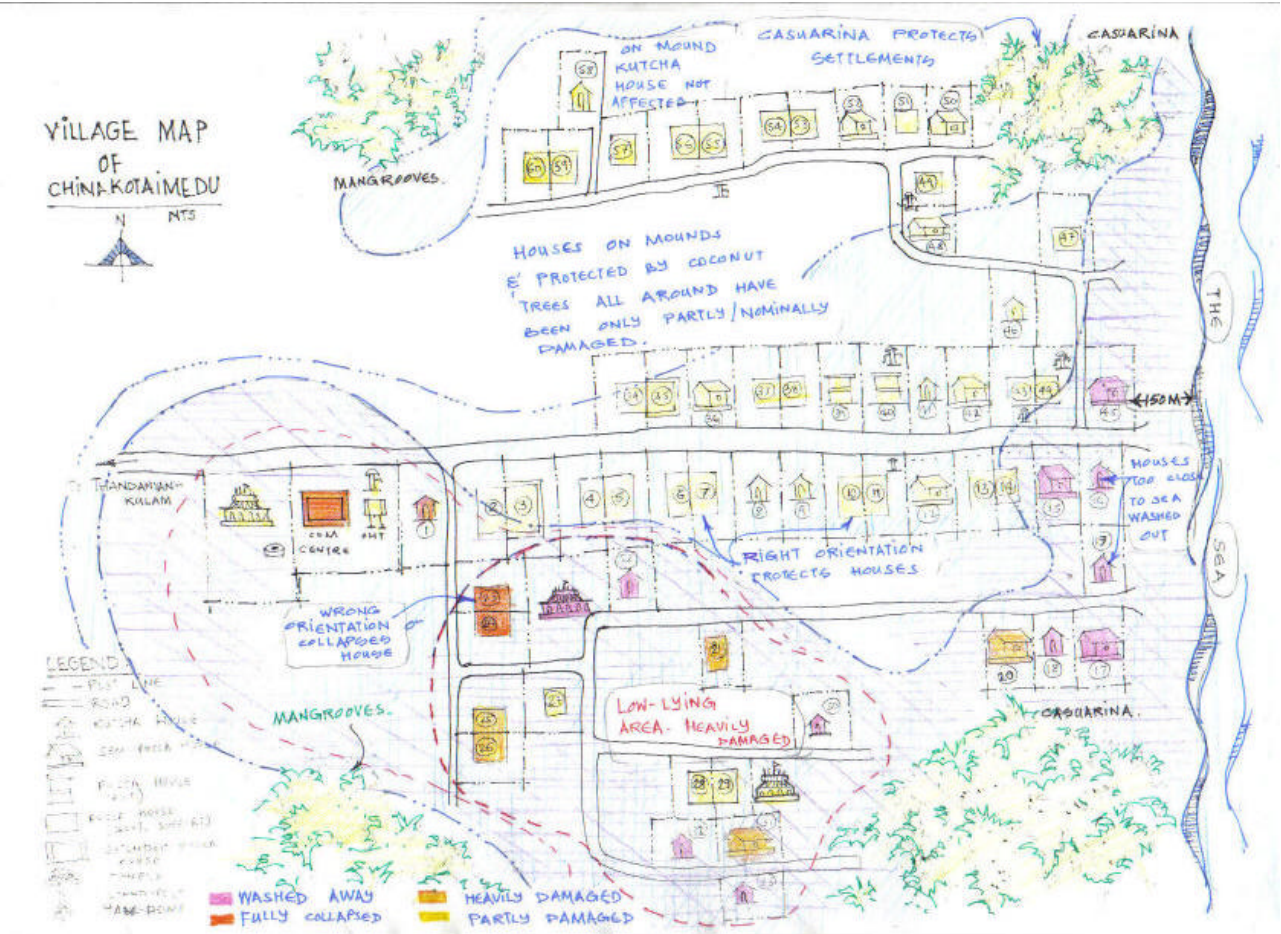 VILLAGE MAP
OF
CHINAKOTAIMEDU
NTS
N
MANGROOVES.
ON MOUND
KUTCHA
HOUSE NOT
AFFECTED
CASUARINA PROTECTS
SETTLEMENTS
CASUARINA
58
60 59
57
56 55
54 53
52
51
50
49
48
47
46
HOUSES ON MOUNDS
& PROTECTED BY COCONUT
TREES ALL AROUND HAVE
BEEN ONLY PARTLY/NOMINALLY
DAMAGED.
THE
SEA
34 35
36
37 38
39
40
41
42
43 44
45
150M
THANDAVAN-
KULAM
COM
CENTRE
OHT
1
2 3
4 5
6 7
8
9
10 11
12
13 14
15
16
HOUSES
TOO CLOSE
TO SEA
WASHED
OUT
RIGHT ORIENTATION
PROTECTS HOUSES
WRONG
ORIENTATION
COLLAPSES
HOUSE
23
24
21
20
18
17
LOW-LYING
AREA. HEAVILY
DAMAGED
25
26
27
28 29
CASUARINA.
MANGROOVES.
LEGEND
PLOT LINE
ROAD
KUTCHA HOUSE
WASHED AWAY
FULLY COLLAPSED
HEAVILY DAMAGED
PARTLY DAMAGED